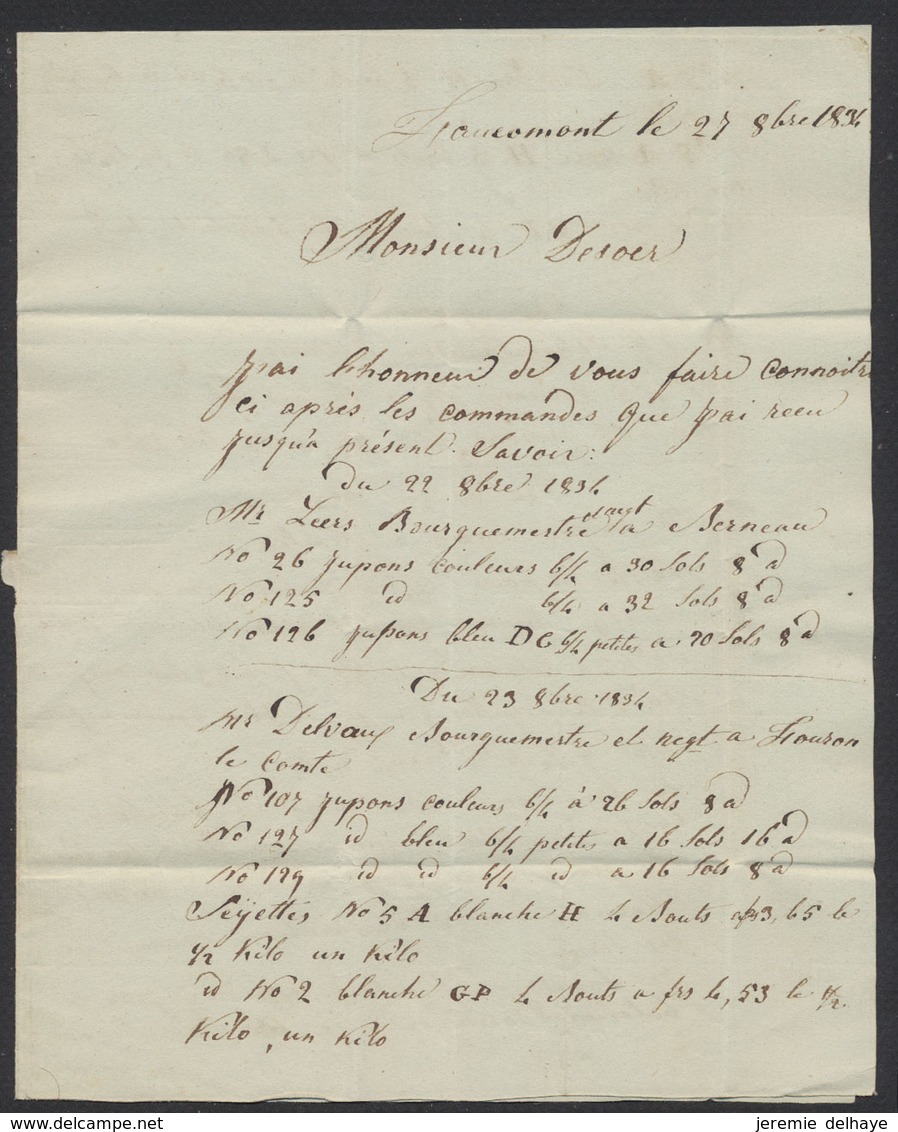 Francomont le 27 8bre 1834
Monsieur Desoer
J'ai l'honneur de vous faire connoitre
ci aprés les commandes que j'ai recu
jusqu'a présent. Savoir:
du 22 8bre 1834
Mr Leers Bourguemestre negt a Berneau
No 26 jupons couleurs 6/4 a 30 Sols 8 d
No 125 id 6/4 a 32 Sols 8 d
No 126 jupons bleu DG 6/4 petites a 20 Sols 8 d
Du 23 8bre 1834
Mr Delvaux Bourguemestre et negt a Fouron
le Comte
No 107 jupons couleurs 6/4 à 26 Sols 8 d
No 127 id bleu 6/4 petites a 16 Sols 16 d
No 129 id id 6/4 id a 16 Sols 8 d
Seÿettes No 5 A blanche H 4 Bouts a frs 3,65 le
1/2 Kilo un Kilo
id No 2 blanche GP 4 Bouts a frs 4,53 le 1/2
Kilo, un Kilo
delcampe.net
jeremie delhaye